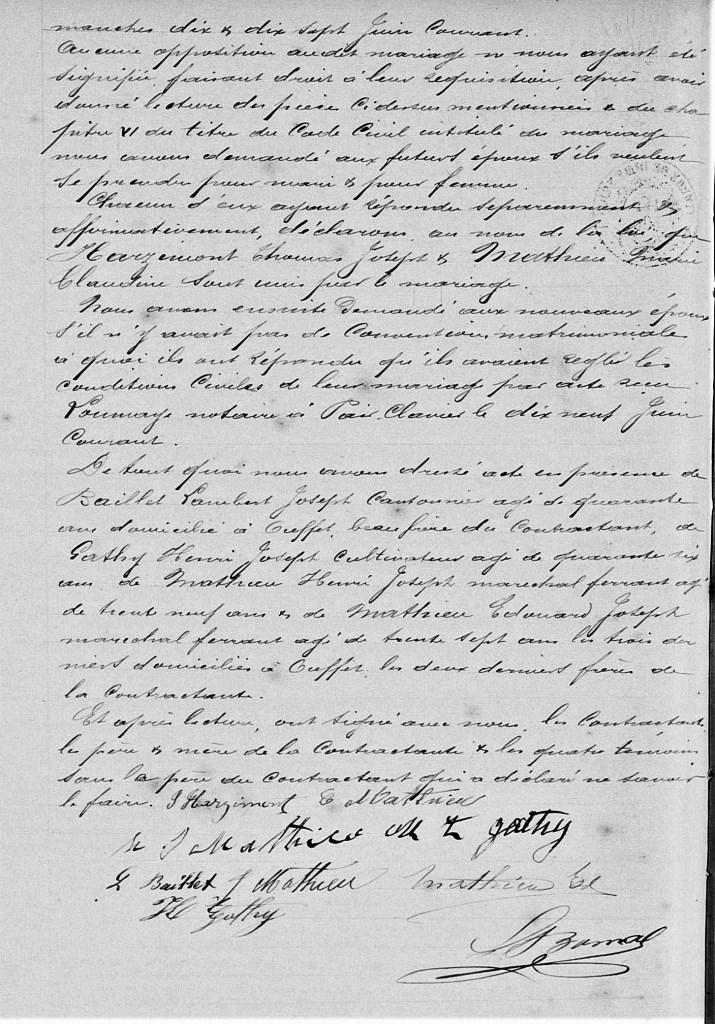 manches dix & dix sept Juin Courant.
Aucune opposition audit mariage ne nous ayant été
signifiée, faisant droit à leur requisition, après avoir
donné lecture des pièces ci dessus mentionnées & du cha
pitre VI du titre du Code Civil intitulé du mariage
nous avons demandé aux futurs époux s'ils veulent
se prendre pour mari & pour femme.
Chacun d'eux ayant répondu separemment &
affirmativement, déclarons au nom de la loi que
Harzemont Thomas Joseph & Mathieu Marie
Claudine sont unis par le mariage.
Nous avons ensuite demandé aux nouveaux époux
s'il n'y avait pas de Conventions matrimoniales
à quoi ils ont répondu qu'ils avaient reglé les
conditions Civiles de leur mariage par acte reçu
Loumaye notaire à Pair-Clavier le dix neuf Juin
Courant.
De tout quoi nous avons dressé acte en présence de
Baillet Lambert Joseph Cantonnier agé de quarante
ans domicilié à Ouffet, beau frère du Contractant, de
Gathy Henri Joseph Cultivateur agé de quarante six
ans, de Mathieu Henri Joseph marechal ferrant agé
de trente neuf ans & de Mathieu Edouard Joseph
marechal ferrant agé de trente sept ans les trois der
niers domiciliés à Ouffet, les deux derniers frères de
la Contractante.
Et après lecture, ont signé avec nous, les Contractants
le père & mère de la Contractante & les quatre temoins
sauf le père du Contractant qui a déclaré ne savoir
le faire. J Harzimont C Mathieu
J Mathieu gathy
L Baillet J Mathieu Mathieu Ed
H Gathy